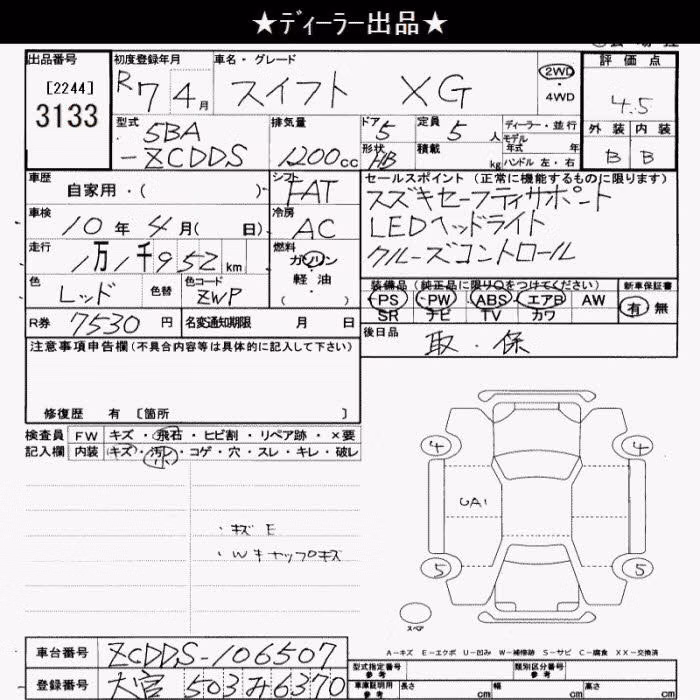 ★ディーラー出品★
出品番号 初度登録年月 車名・グレード 評価点
[2244] R7年4月 スイフト XG 2WD・4WD 4.5
3133
型式 排気量 ドア 定員 ディーラー・並行 外装 内装
5BA 5 5人 モデル年式 年 B B
-ZCDDS 1200cc 形状 HB 積載 kg ハンドル 左・右
車歴 シフト セールスポイント(正常に機能するものに限ります)
自家用・( ) FAT スズキセーフティサポート
車検 10年4月( 日) 冷房 AC LEDヘッドライト
走行 燃料 クルーズコントロール
1万1千952km ガソリン
軽油
( )
色 レッド 色替 色コード ZWP 装備品(純正品に限り○をつけてください) 新車保証書
PS・PW・ABS・エアB AW 有 無
SR ナビ TV カワ
R券 7530円 名変通知期限 月 日 後日品 取・保
注意事項申告欄(不具合内容等は具体的に記入して下さい)
修復歴 有 [箇所 ]
検査員 FW キズ・飛石・ヒビ割・リペア跡・×要
記入欄 内装 キズ・汚レ・コゲ・穴・スレ・キレ・破レ
4 4
UA1
・キズ E
・Wキャップキズ
5 5
スペア
A-キズ E-エクボ U-凹み W-補修跡 S-サビ C-腐食 XX-交換済
車台番号 ZCDDS-106507 型式指定番号 参考 類別区分番号 参考
登録番号 大宮 503 み 6370 車庫証明用 参考 長さ cm 幅 cm 高さ cm